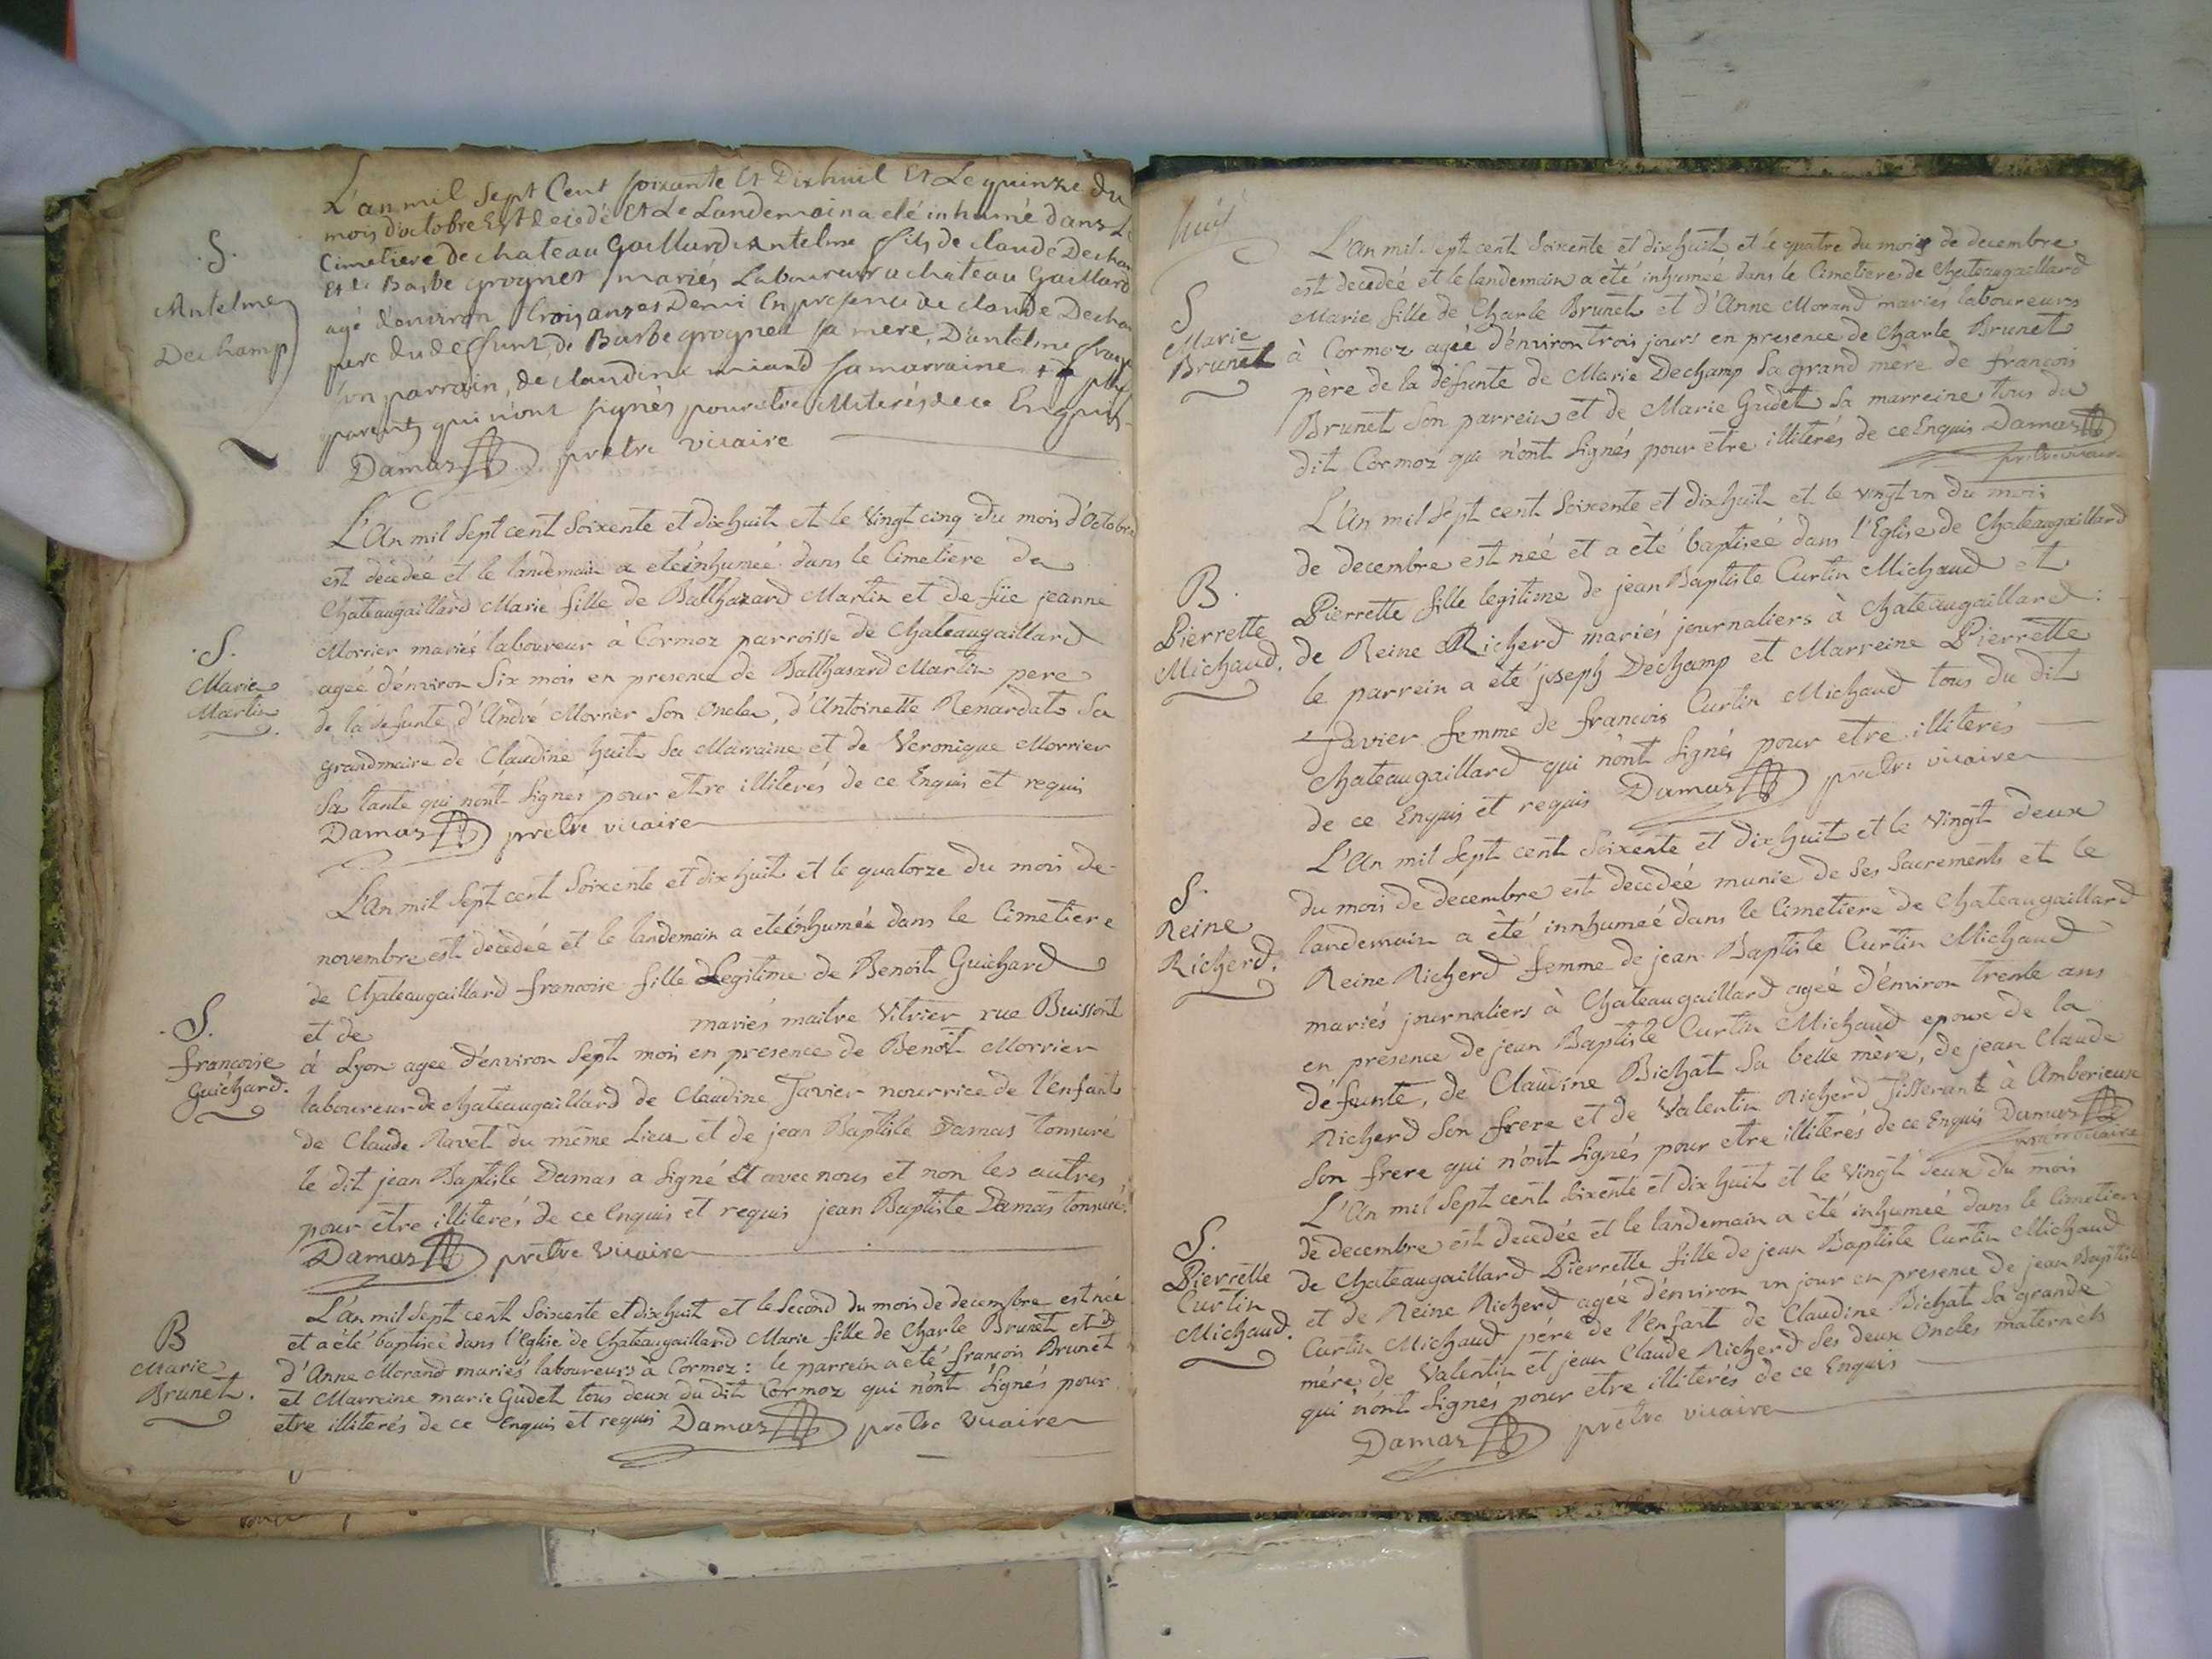 L'an mil Sept Cent soixante Et Dixhuil Et Le quinze du
mois doctobre Est decedé Et Le Landemain a eté inhumé dans Le
Cimetiere de chateau Gaillard Antelme fils de claude Decham
Et de Barbe grognet mariés Laboureur a chateau Gaillard
agé denviron trois ans et Demi En presence de claude Decham
pere du defunt, de Barbe grognet sa mere, D'antelme
son parrain, de claudine sa marraine
parents qui n'ont signés pour etre illiterés de ce Enquis
Damas prêtre vicaire
.S.
Antelme
Dechamp
L'An mil Sept cent Soixente et dixhuit et le Vingt cinq du mois d'Octobre
est decedéé et le landemain a eté inhumeé dans le Cimetiere de
Chateaugaillard Marie fille de Balthazard Martin et de füe jeanne
Morrier mariés laboureur à Cormoz parroisse de Chateaugaillard
ageé d'environ Six mois en presence de Balthasard Martin pere
de la defunte, d'André Morrier Son Oncle, d'Antoinette Renardat Sa
grandmaire de Claudine huit Sa Marraine et de Veronique Morrier
Sa tante qui n'ont Signés pour etre illiterés de ce Enquis et requis
Damas prêtre vicaire
.S.
Marie
Martin
L'An mil Sept cent Soixente et dixhuit et le quatorze du mois de
novembre est decedéé et le landemain a eté inhuméé dans le Cimetiere
de Chateaugaillard francoise fille Legitime de Benoit Guichard
et de mariés maitre Vitrier rue Buisson
à Lyon agee d'environ Sept mois en presence de Benoit Morrier
laboureur de chateaugaillard de Claudine Javier nourrice de l'enfant
de Claude Ravet du même Lieu et de jean Baptiste Damas tonsuré
le dit jean Baptiste Damas a Signé et avec nous et non les autres
pour être illiterés de ce Enquis et requis jean Baptiste Damas tonsuré.
Damas prêtre Vicaire
.S.
françoise
Guichard.
L'An mil Sept cent Soixente et dixhuit et le Second du mois de decembre est neé
et a été baptiseé dans l'Eglise de Chateaugaillard Marie fille de Charle Brunet et
d'Anne Morand mariés laboureurs à Cormoz : le parrein a eté francois Brunet
et Marreine marie Gudet tous deux du dit Cormoz qui n'ont Signés pour
etre illiterés de ce Enquis et requis Damas prêtre Vicaire
B
Marie
Brunet.
huit
L'An mil Sept cent Soixente et dixhuit et le quatre du mois de decembre
est decedéé et le landemain a été inhumeé dans le Cimetiere de Chateaugaillard
Marie fille de Charle Brunet et d'Anne Morand mariés laboureurs
à Cormoz ageé d'environ trois jours en presence de Charle Brunet
père de la défunte de Marie Dechamp Sa grand mère de francois
Brunet Son parrein et de Marie Gudet Sa marreine tous du
dit Cormoz qui n'ont Signés pour etre illiterés de ce Enquis Damas
prêtre vicaire
S
Marie
Brunet
L'An mil Sept cent Soixente et dixhuit et le vingt un du mois
de decembre est neé et a été baptiseé dans l'Eglise de Chateaugaillard
Pierrette fille legitime de jean Baptiste Curtin Michaud et
de Reine Richerd mariés journaliers à Chateaugaillard :
le parrein a eté joseph Dechamp et Marreine Pierrette
Javier femme de francois Curtin Michaud tous du dit
Chateaugaillard qui n'ont Signés pour etre illiterés
de ce Enquis et requis Damas prêtre vicaire
B.
Pierrette
Michaud.
L'An mil Sept cent Soixente et dixhuit et le Vingt deux
du mois de decembre est decedéé munie de Ses Sacrements et le
landemain a été innhumeé dans le Cimetiere de Chateaugaillard
Reine Richerd femme de jean Baptiste Curtin Michaud
mariés journaliers à Chateaugaillard ageé d'environ trente ans
en presence de jean Baptiste Curtin Michaud epoux de la
défunte, de Claudine Bichat Sa belle mère, de jean Claude
Richerd Son frere et de Valentin Richerd tisserant à Amberieux
Son frere qui n'ont Signés pour etre illiterés de ce Enquis Damas
prêtre vicaire
S.
Reine
Richerd.
L'An mil Sept cent Soixente et dixhuit et le Vingt deux du mois
de decembre est decedéé et le landemain a été inhumeé dans le Cimetiere
de Chateaugaillard Pierrette fille de jean Baptiste Curtin Michaud
et de Reine Richerd ageé d'environ un jour en presence de jean Baptiste
Curtin Michaud pére de l'enfant de Claudine Bichat Sa grande
mére, de Valentin et jean Claude Richerd Ses deux Oncles maternels
qui n'ont Signés pour etre illiterés de ce Enquis
Damas prêtre vicaire
S.
Pierrette
Curtin
Michaud.